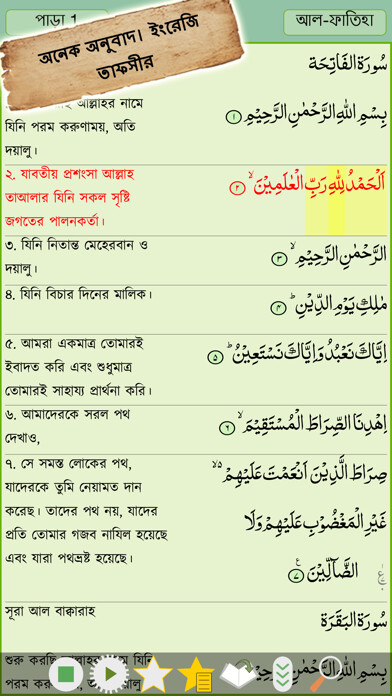 পাড়া 1
আল-ফাতিহা
অনেক অনুবাদ। ইংরেজি
তাফসীর
سُورَة الفَاتِحَة
আল্লাহর নামে
যিনি পরম করুণাময়, অতি
দয়ালু।
بِسْمِ اللهِ الرَّحْمٰنِ الرَّحِيْمِ ١
২. যাবতীয় প্রশংসা আল্লাহ
তাআলার যিনি সকল সৃষ্টি
জগতের পালনকর্তা।
اَلْحَمْدُ لِلّٰهِ رَبِّ الْعٰلَمِيْنَ ۙ ٢
৩. যিনি নিতান্ত মেহেরবান ও
দয়ালু।
الرَّحْمٰنِ الرَّحِيْمِ ۙ ٣
৪. যিনি বিচার দিনের মালিক।
مٰلِكِ يَوْمِ الدِّيْنِ ؕ ٤
৫. আমরা একমাত্র তোমারই
ইবাদত করি এবং শুধুমাত্র
তোমারই সাহায্য প্রার্থনা করি।
اِيَّاكَ نَعْبُدُ وَاِيَّاكَ نَسْتَعِيْنُ ؕ ٥
৬. আমাদেরকে সরল পথ
দেখাও,
اِهْدِنَا الصِّرَاطَ الْمُسْتَقِيْمَ ۙ ٦
৭. সে সমস্ত লোকের পথ,
যাদেরকে তুমি নেয়ামত দান
করেছ। তাদের পথ নয়, যাদের
প্রতি তোমার গজব নাযিল হয়েছে
এবং যারা পথভ্রষ্ট হয়েছে।
صِرَاطَ الَّذِيْنَ اَنْعَمْتَ عَلَيْهِمْ ۙ
غَيْرِ الْمَغْضُوْبِ عَلَيْهِمْ وَلَا
الضَّآلِّيْنَ ٧
সূরা আল বাক্বারাহ
سُورَة البَقَرَة
শুরু করছি আল্লাহর নামে যিনি
পরম করুণাময়, অতি দয়ালু।
بِسْمِ اللهِ الرَّحْمٰنِ الرَّحِيْمِ